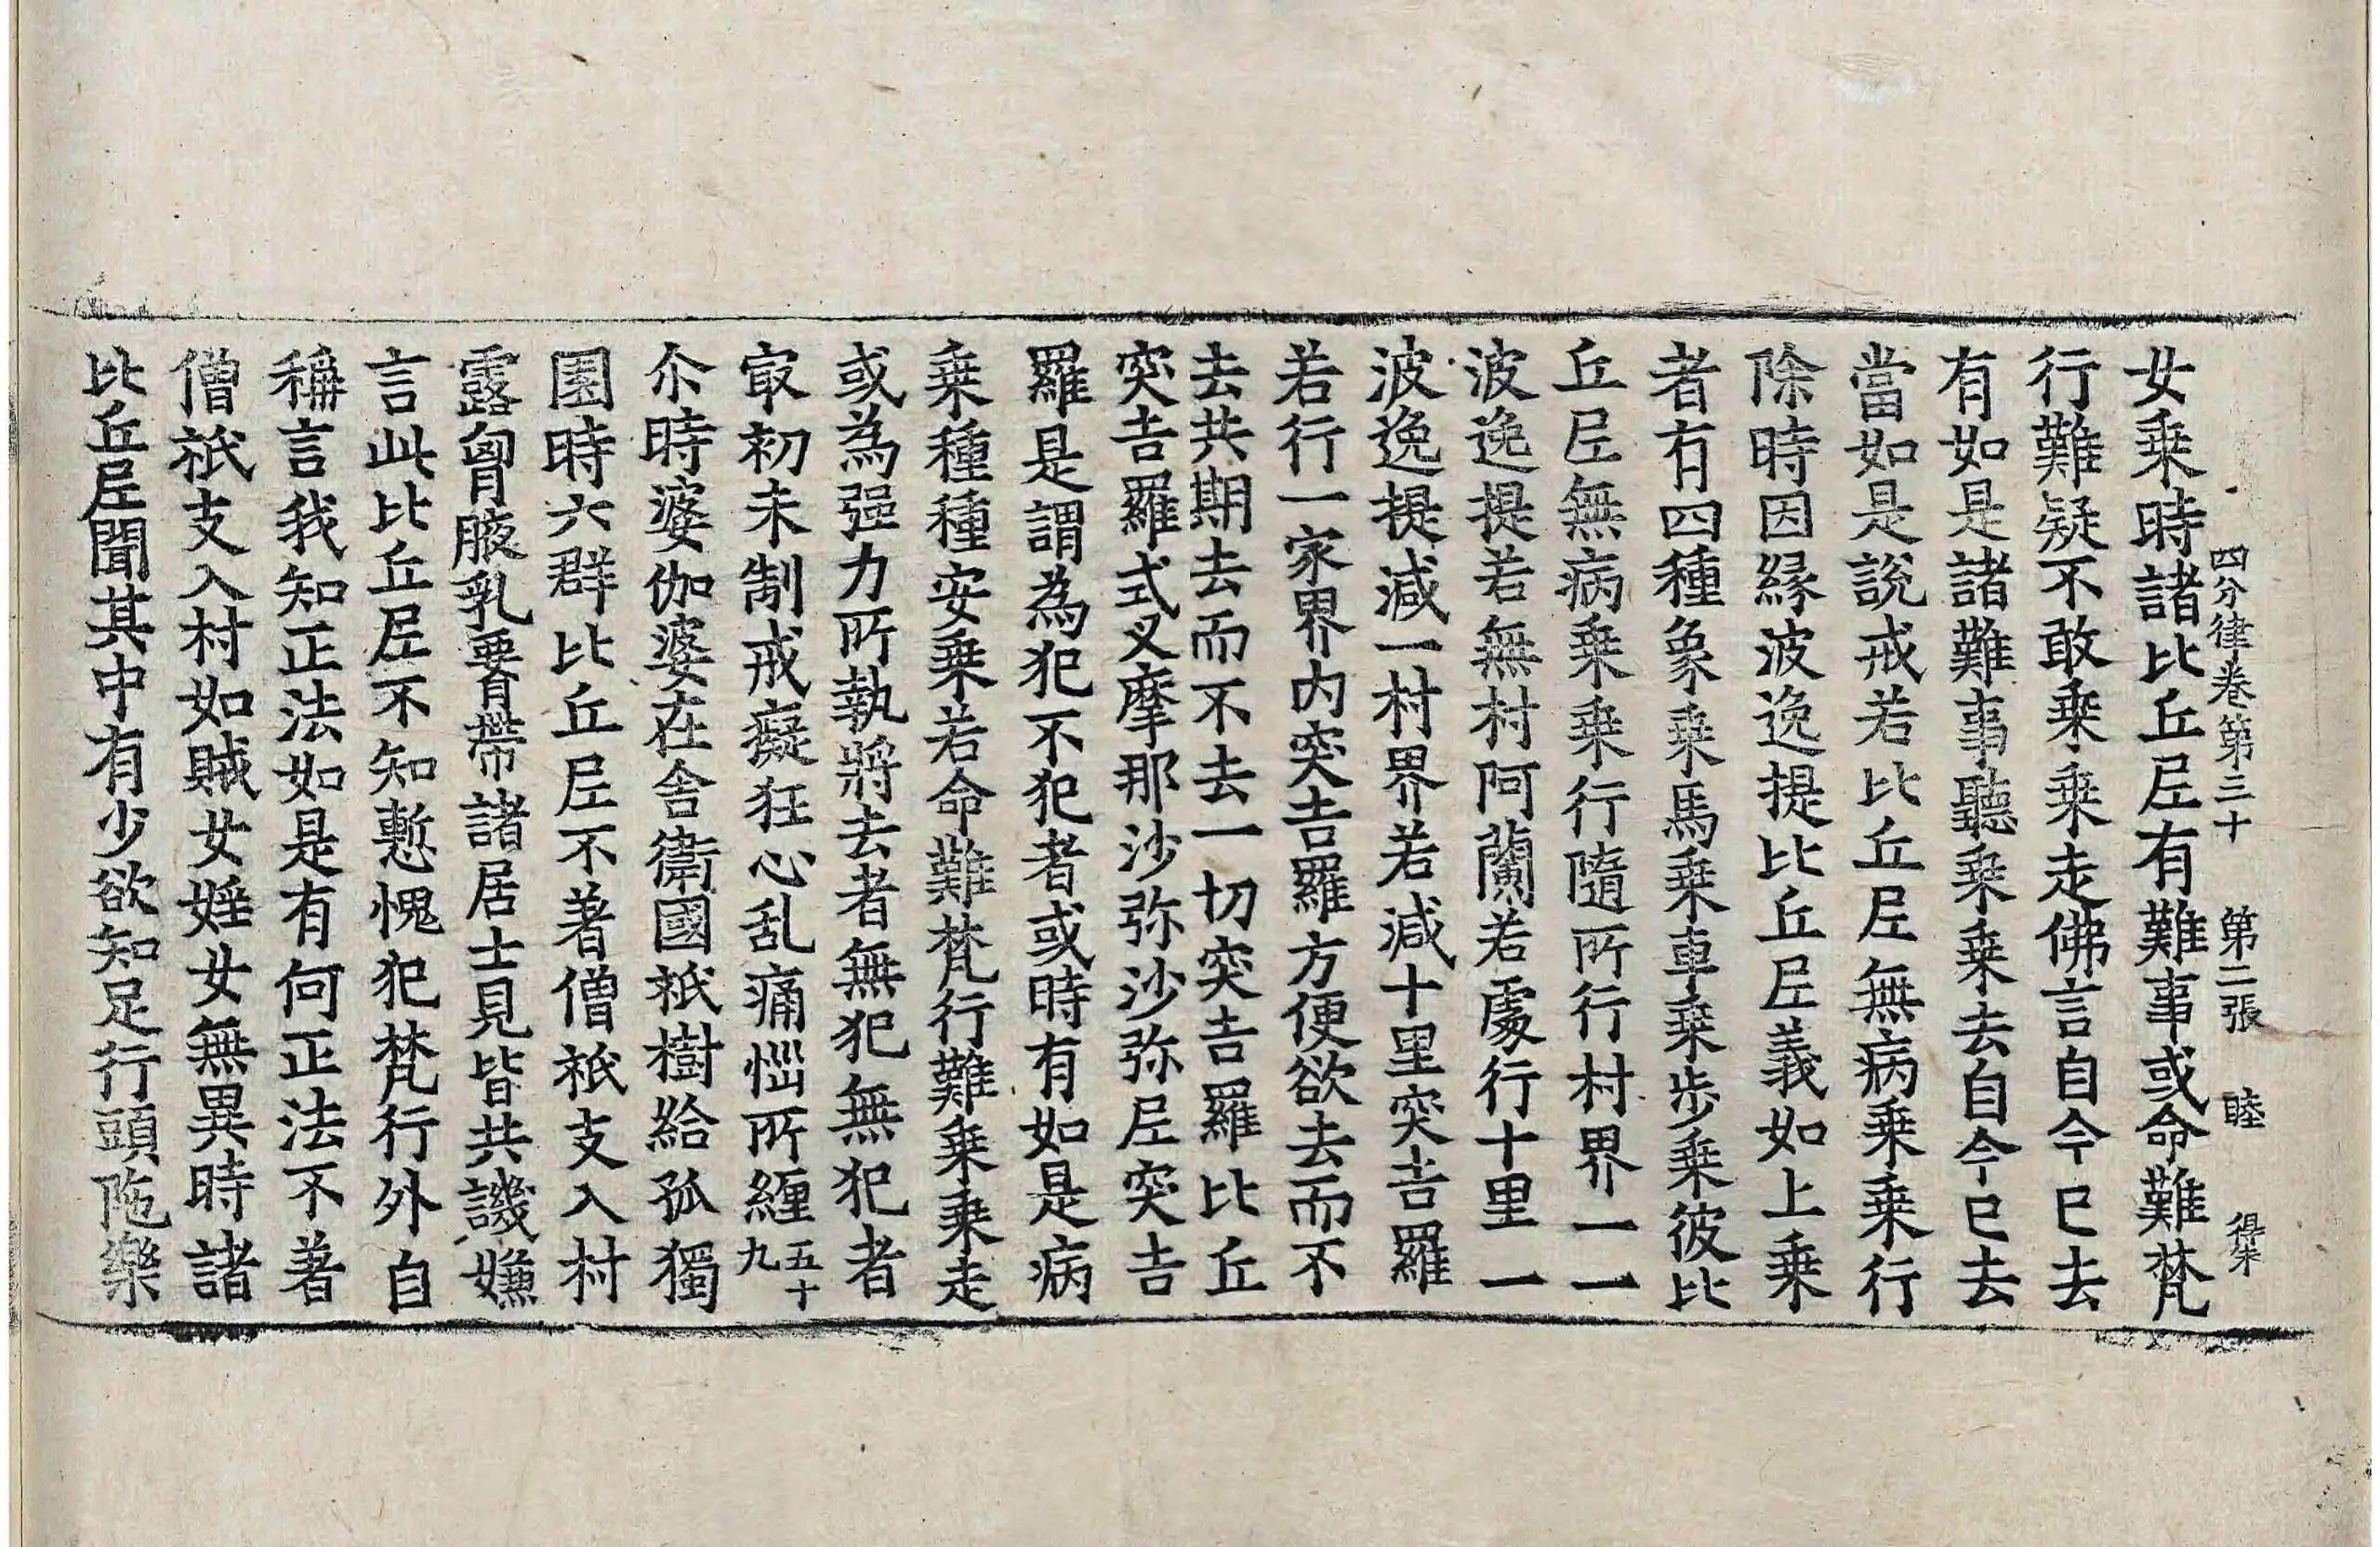 四分律卷第三十 第二張 睦
女乗時諸比丘尼有難事或命難梵
行難疑不敢乗乗走佛言自今已去
有如是諸難事聽乗乗去自今已去
當如是說戒若比丘尼無病乗乗行
除時因緣波逸提比丘尼義如上乗
者有四種象乗馬乗車乗步乗彼比
丘尼無病乗乗行隨所行村界一一
波逸提若無村阿蘭若處行十里一
波逸提減一村界若減十里突吉羅
若行一家界内突吉羅方便欲去而不
去共期去而不去一切突吉羅比丘
突吉羅式叉摩那沙弥沙弥尼突吉
羅是謂為犯不犯者或時有如是病
乗種種安乗若命難梵行難乗乗走
或為强力所執將去者無犯無犯者
㝡初未制戒癡狂心乱痛惱所纏五十九
尒時婆伽婆在舍衛國祇樹給孤獨
園時六群比丘尼不著僧祇支入村
露胷腋乳𦝫帶諸居士見皆共譏嫌
言此比丘尼不知慙愧犯梵行外自
稱言我知正法如是有何正法不著
僧祇支入村如賊女婬女無異時諸
比丘尼聞其中有少欲知足行頭陁樂